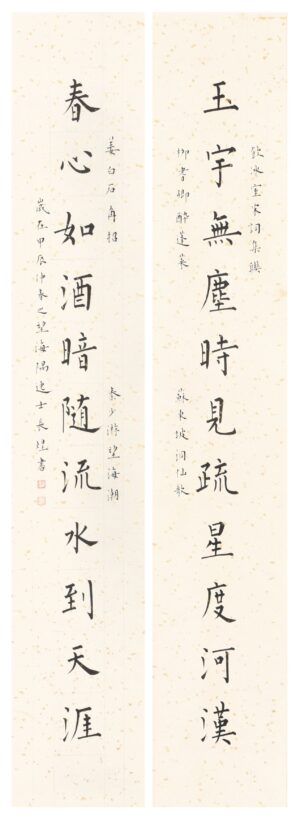 飲冰室宋詞集聯
玉宇無塵時見疏星度河漢
柳耆卿醉蓬萊
蘇東坡洞仙歌
姜白石角招
秦少游望海潮
春心如酒暗隨流水到天涯
歲在甲辰仲春之望海隅士長書